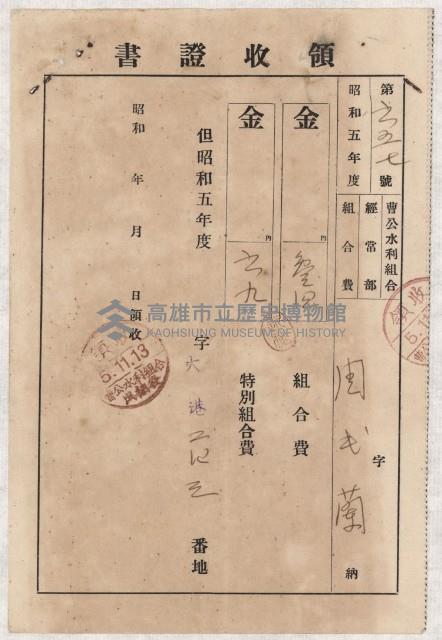 領收證書
第 六五七 號
昭和五年度
曹公水利組合
經常部
組合費
字
周 氏 蘭 納
金 圓 組合費
金 圓 六九 特別組合費
但昭和五年度 字 大港 番地
昭和 年 月 日領收
領收
5.11.13
曹公水利組合
領收
高雄市立歷史博物館
KAOHSIUNG MUSEUM OF HISTORY